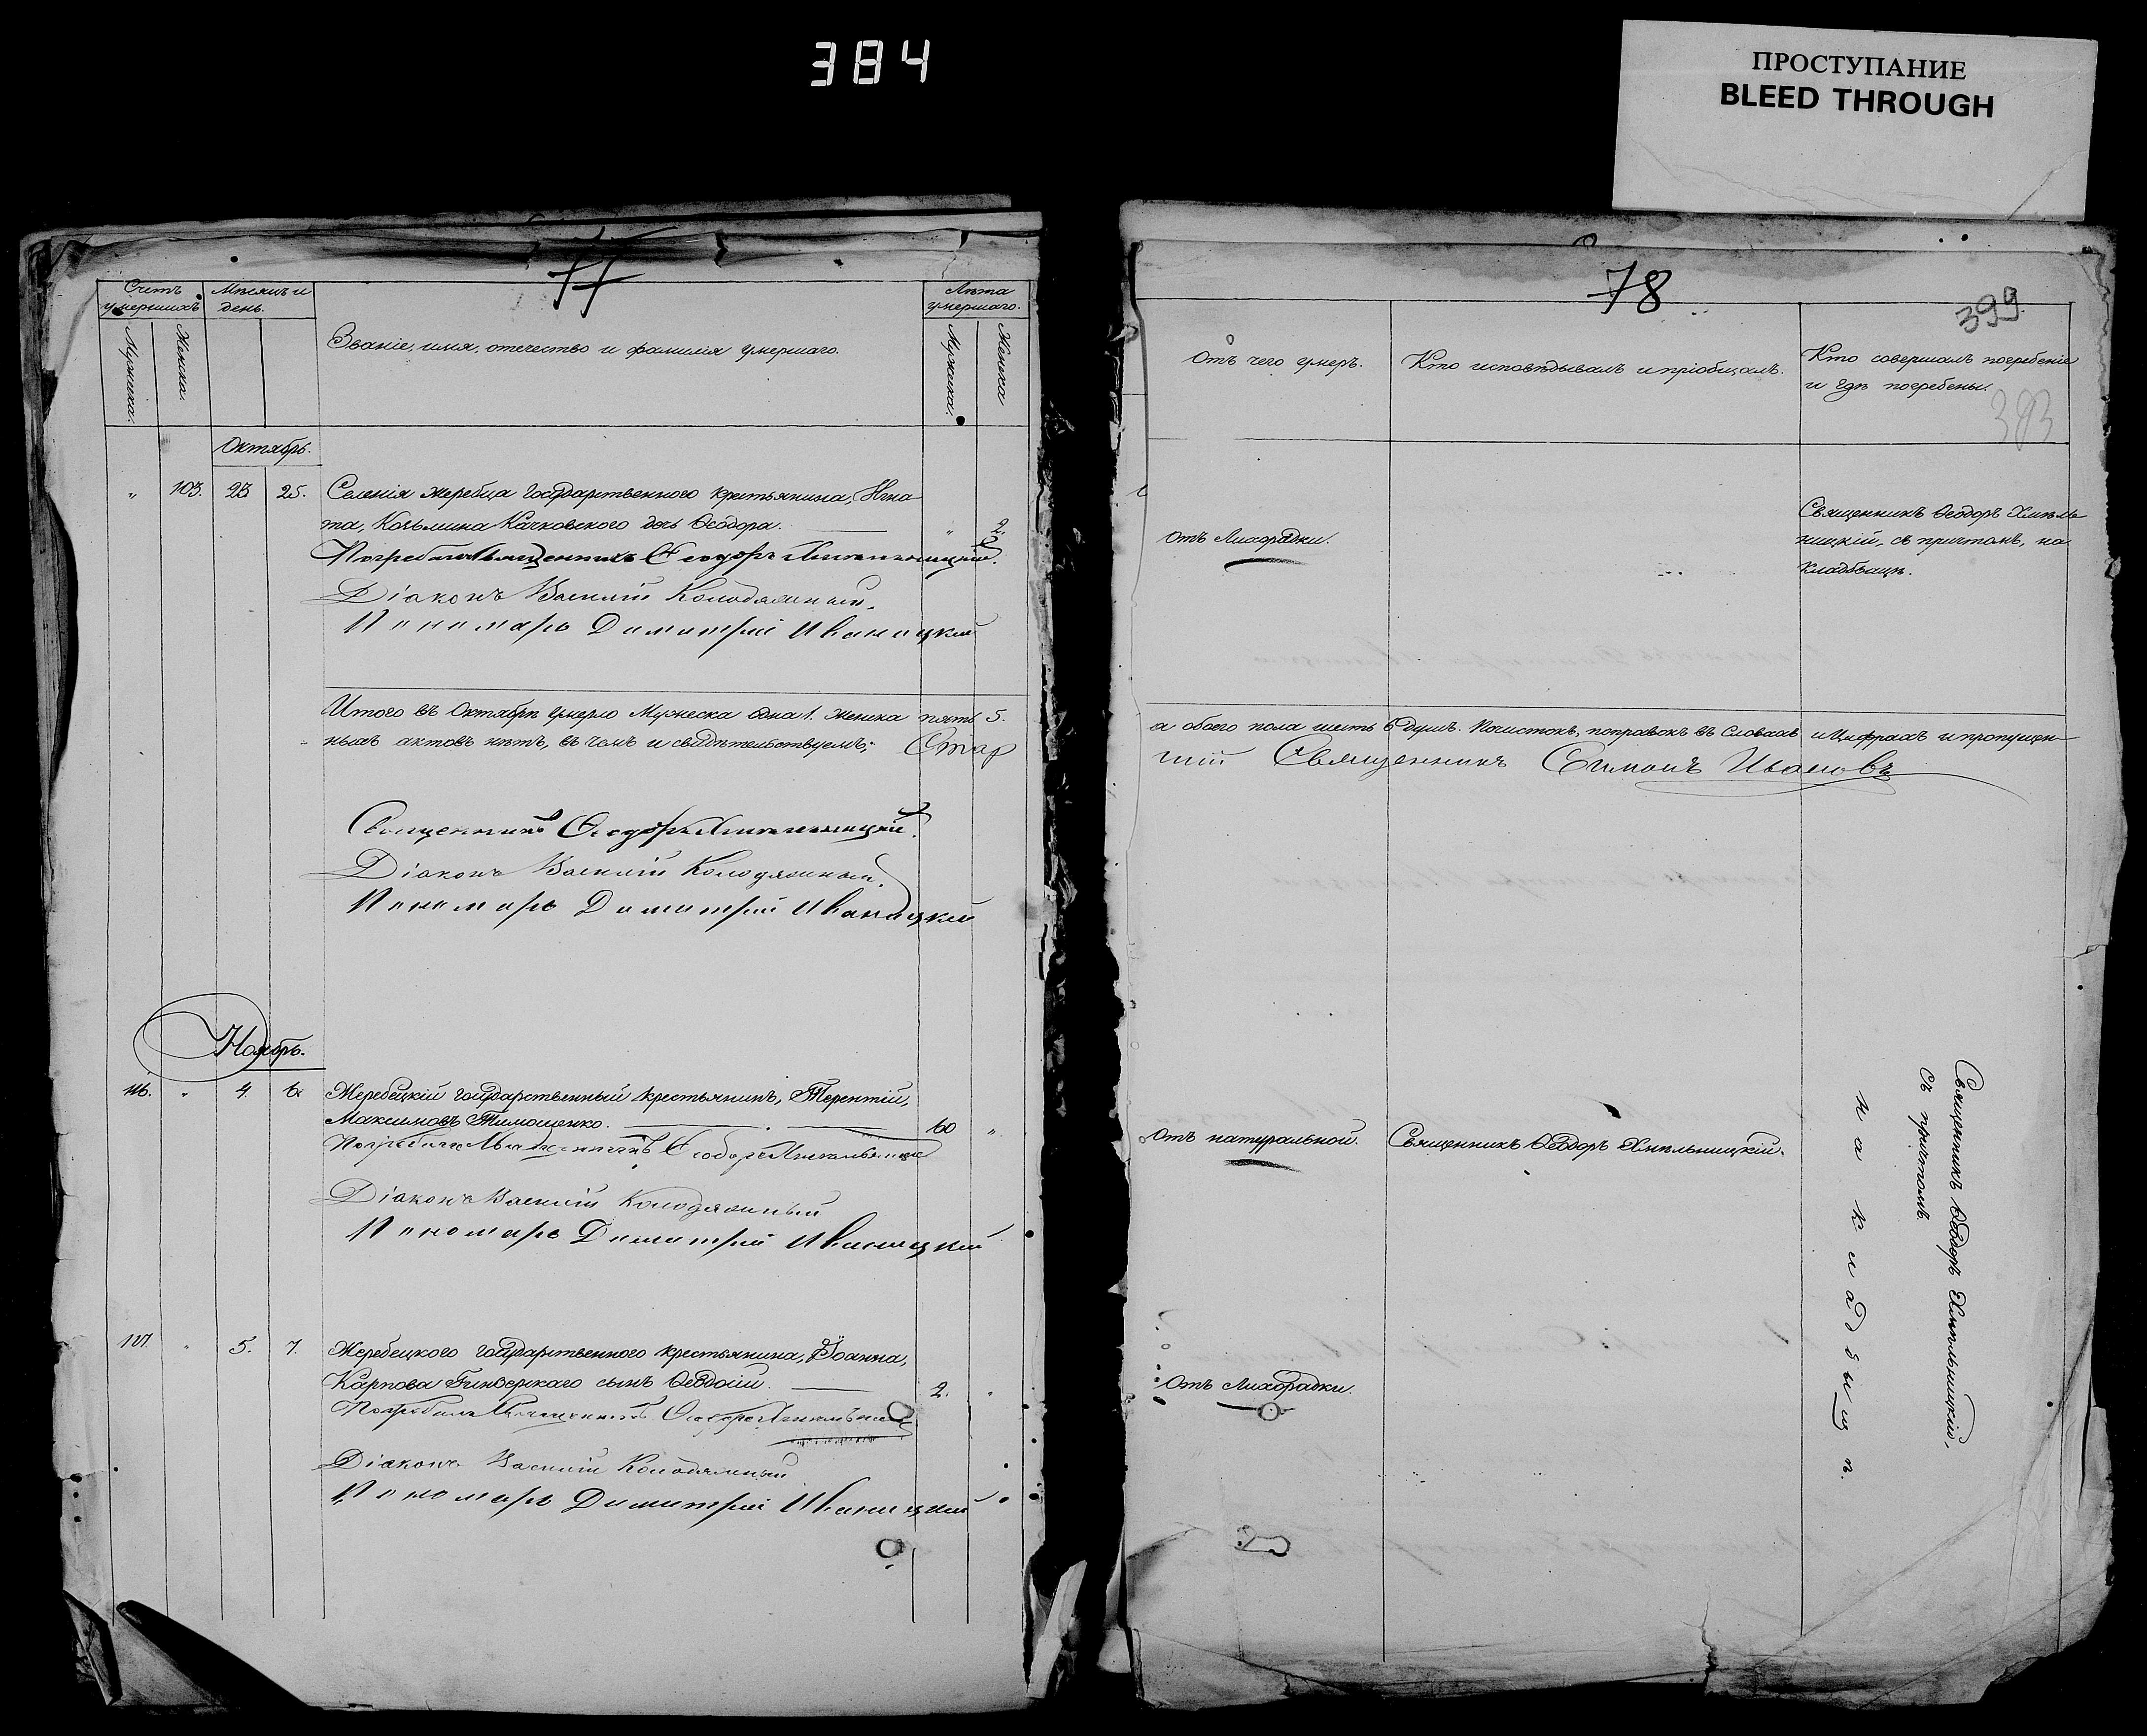 384
ПРОСТУПАНИЕ
BLEED THROUGH
77
Счетъ умершихъ.
Мужеска.
Женска.
Мѣсяцъ и день.
Званіе, имя, отечество и фамилія умершаго.
Лѣта умершаго.
Мужеска.
Женска
Октябрь.
" 103. 23 25. Селенія Жеребца Государственного крестьянина, Игна
та, Козьмина Качковского дочь Ѳеодора. " 2.
Погребалъ Священникъ Ѳеодоръ Хмѣльницкій.
Діаконъ Василій Колодяжный.
Пономарь Димитрій Иваницкій
Итого въ Октябрѣ умерло Мужеска одна 1. Женска пять 5.
ныхъ актовъ нѣтъ, въ чемъ и свидѣтельствуемъ; Стар
Священникъ Ѳеодоръ Хмѣльницкій.
Діаконъ Василій Колодяжный.
Пономарь Димитрій Иваницкій
Ноябрь.
" 4. 6. Жеребецкій государственный крестьянинъ, Терентій,
Максимовъ Тимошенко. 60 "
Погребалъ Священникъ Ѳеодоръ Хмѣльницкій
Діаконъ Василій Колодяжный
Пономарь Димитрій Иваницкій
107. " 5. 7. Жеребецкого государственного крестьянина, Іоанна,
Карпова сынъ 2. "
Погребалъ Священникъ Ѳеодоръ Хмѣльницкій
Діаконъ Василій Колодяжный
Пономарь Димитрій Иваницкій
78
399.
383
Отъ чего умеръ.
Кто исповѣдывалъ и пріобщалъ.
Кто совершалъ погребеніе
и гдѣ погребены.
Отъ Лихорадки.
Священникъ Ѳеодоръ Хмѣль
ницкій, съ причтомъ, на
кладбищѣ.
а обоего пола шесть 6 душъ. Почистокъ, поправокъ въ словахъ и Цифрахъ и пропущен
шій Священникъ Симонъ Ивановъ
Отъ натуральной. Священникъ Ѳеодоръ Хмѣльницкій.
Священникъ Ѳеодоръ Хмѣльницкій,
съ причтомъ.
на кладбищѣ.
Отъ Лихорадки.